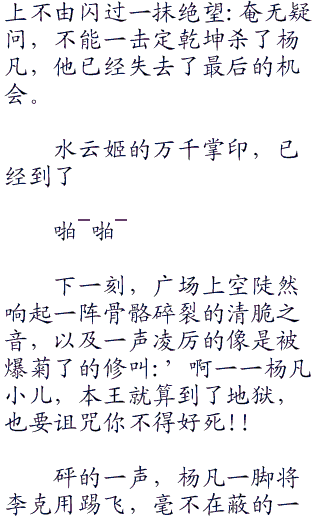 上不由闪过一抹绝望:奄无疑
问，不能一击定乾坤杀了杨
凡，他已经失去了最后的机
会。
水云姬的万千掌印，已
经到了
啪¯啪¯
下一刻，广场上空陡然
响起一阵骨骼碎裂的清脆之
音，以及一声凌厉的像是被
爆菊了的修叫:’啊一一杨凡
小儿，本王就算到了地狱，
也要诅咒你不得好死!!
砰的一声，杨凡一脚将
李克用踢飞，毫不在蔽的一